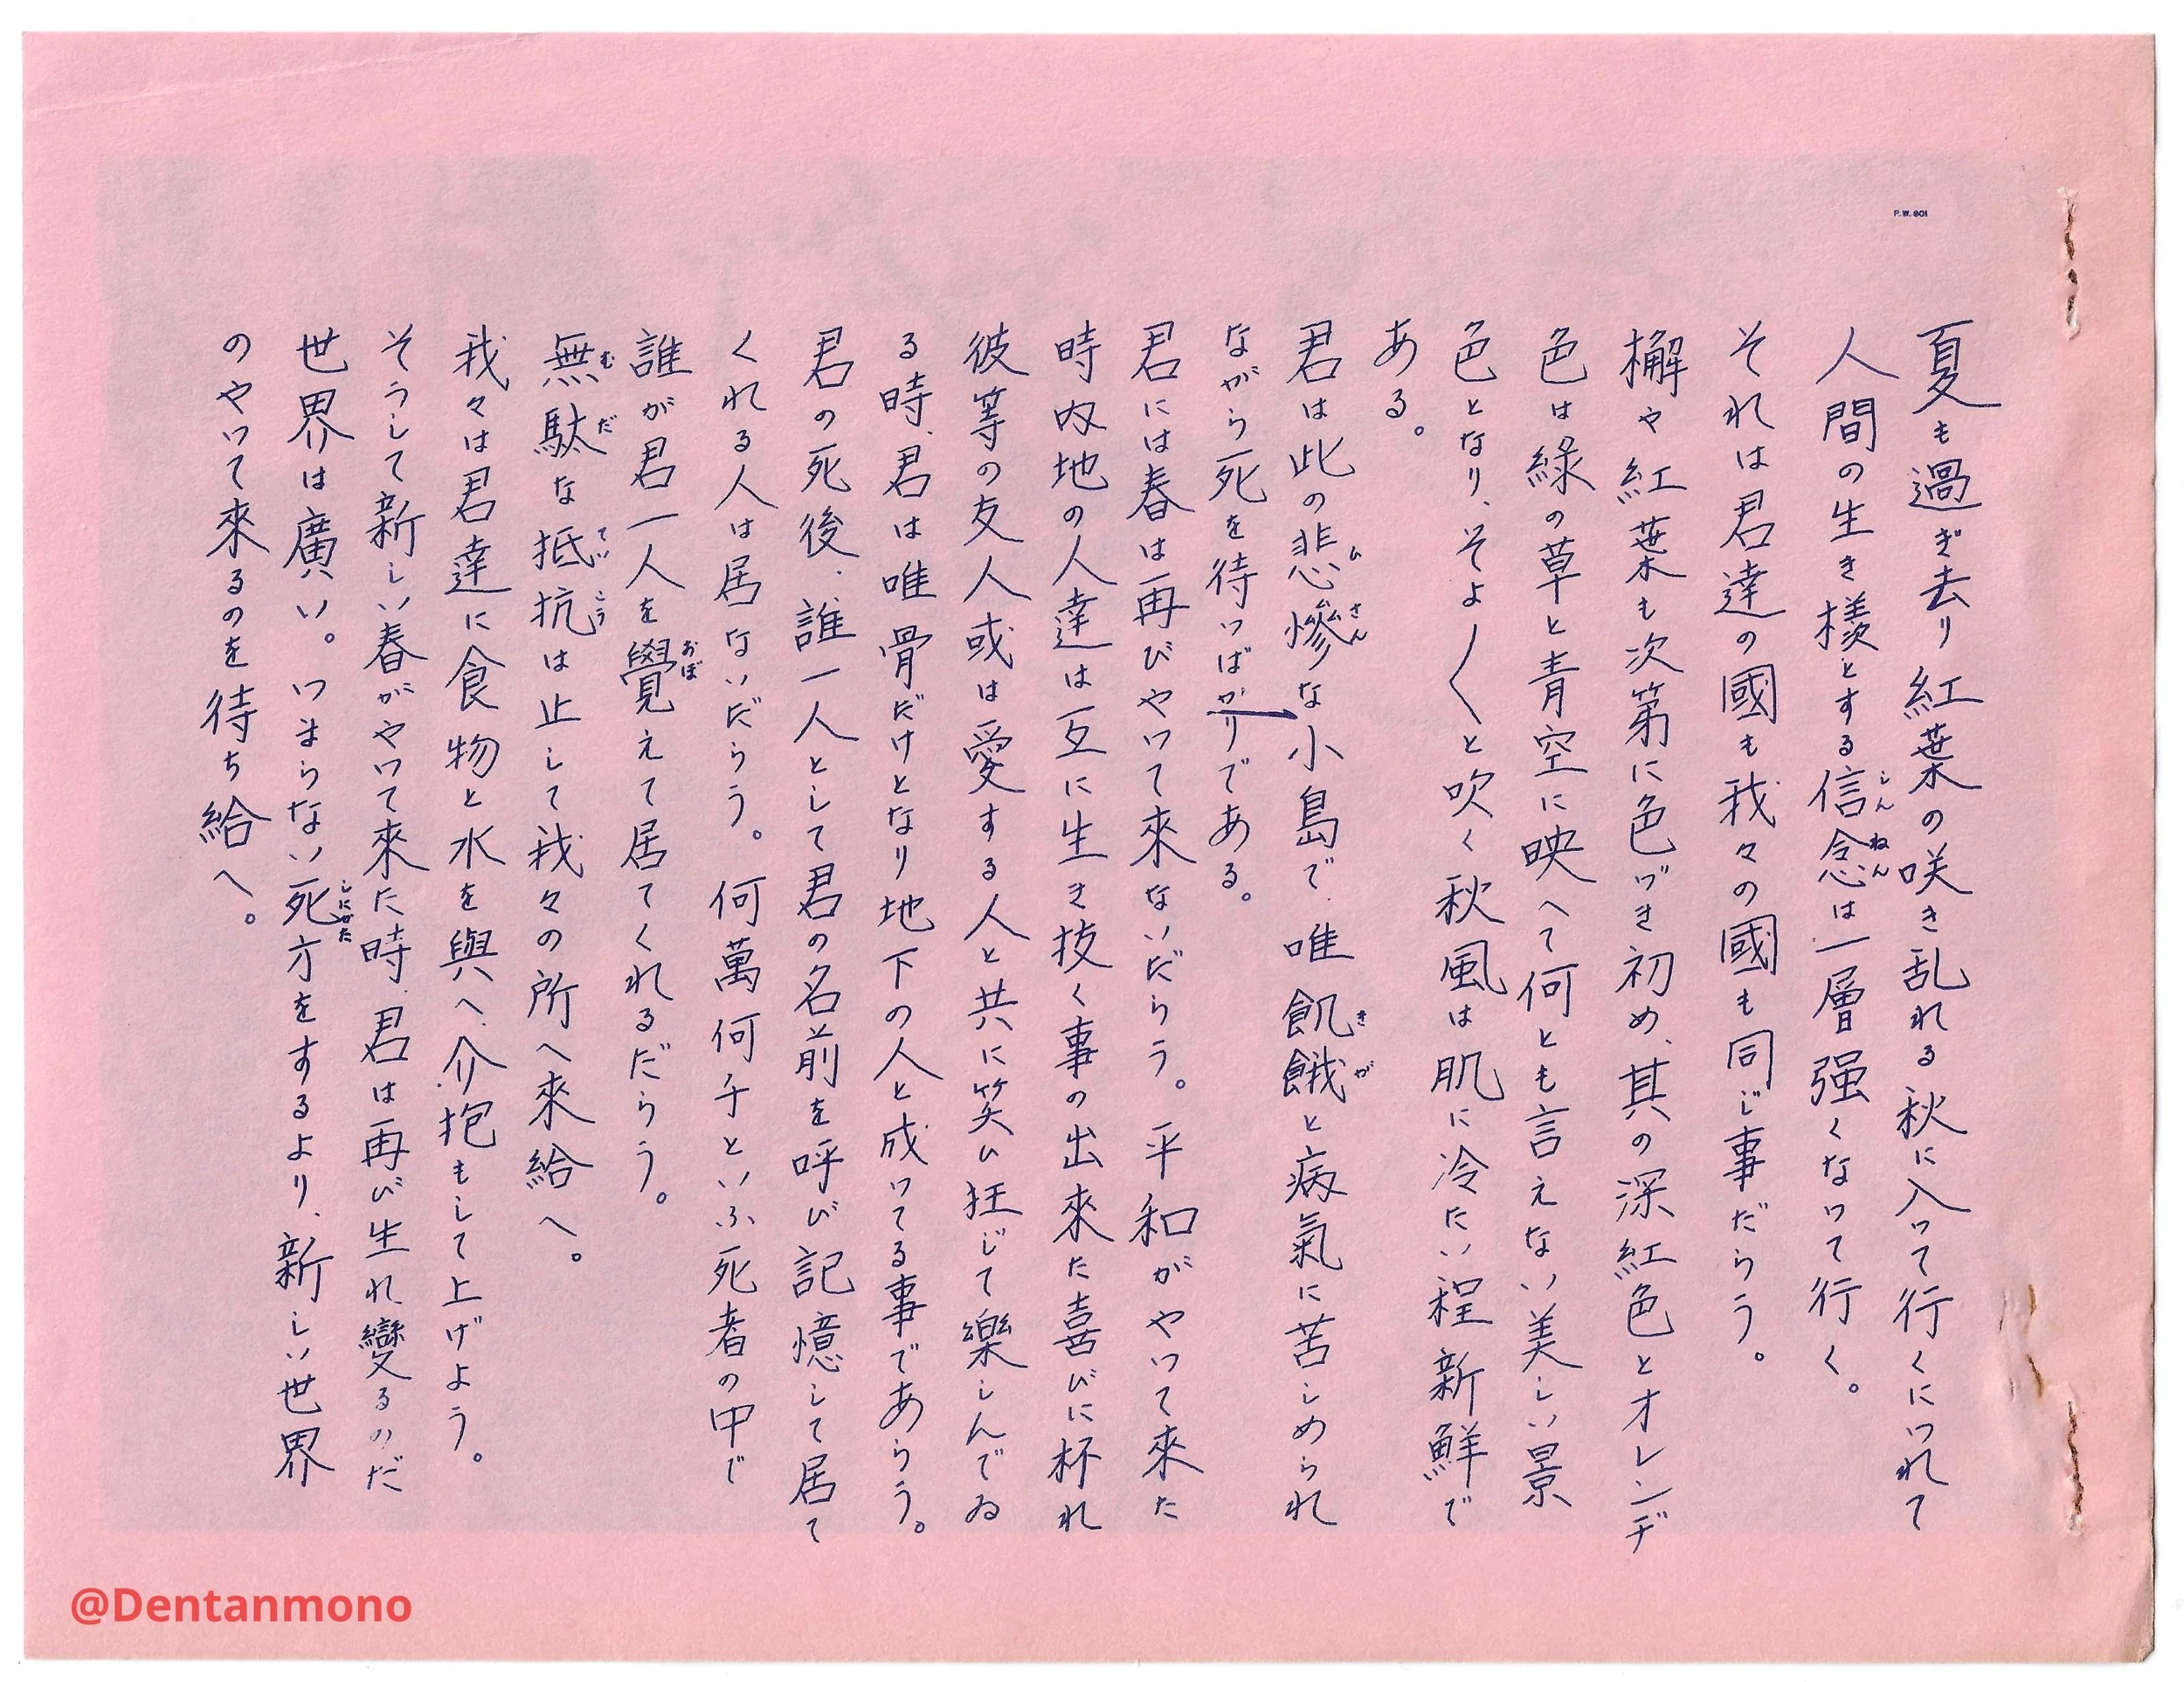 P.W. 801
夏も過ぎ去り紅葉の咲き乱れる秋に入って行くにつれて
人間の生き樣とする信念は一層强くなって行く。
それは君達の國も我々の國も同じ事だらう。
檞や紅葉も次第に色づき初め、其の深紅色とオレンヂ
色は綠の草と青空に映へて何とも言えない美しい景
色となり、そよ〱と吹く秋風は肌に冷たい程新鮮で
ある。
君は此の悲慘な小島で、唯飢餓と病氣に苦しめられ
ながら死を待つばかりである。
君には春は再びやって來ないだらう。平和がやって來た
時内地の人達は互に生き技く事の出來た喜びに杯れ
彼等の友人或は愛する人と共に笑ひ狂じて樂しんでゐ
る時、君は唯骨だけとなり地下の人と成ってる事であらう。
君の死後、誰一人として君の名前を呼び記憶して居て
くれる人は居ないだらう。何萬何千といふ死者の中で
誰が君一人を覺えて居てくれるだらう。
無駄な抵抗は止して我々の所へ來給へ。
我々は君達に食物と水を與へ、介抱もして上げよう。
そうして新しい春がやって來た時、君は再び生れ變るのだ
世界は廣い。つまらない死方をするより、新しい世界
のやって來るのを待ち給へ。
@Dentanmono